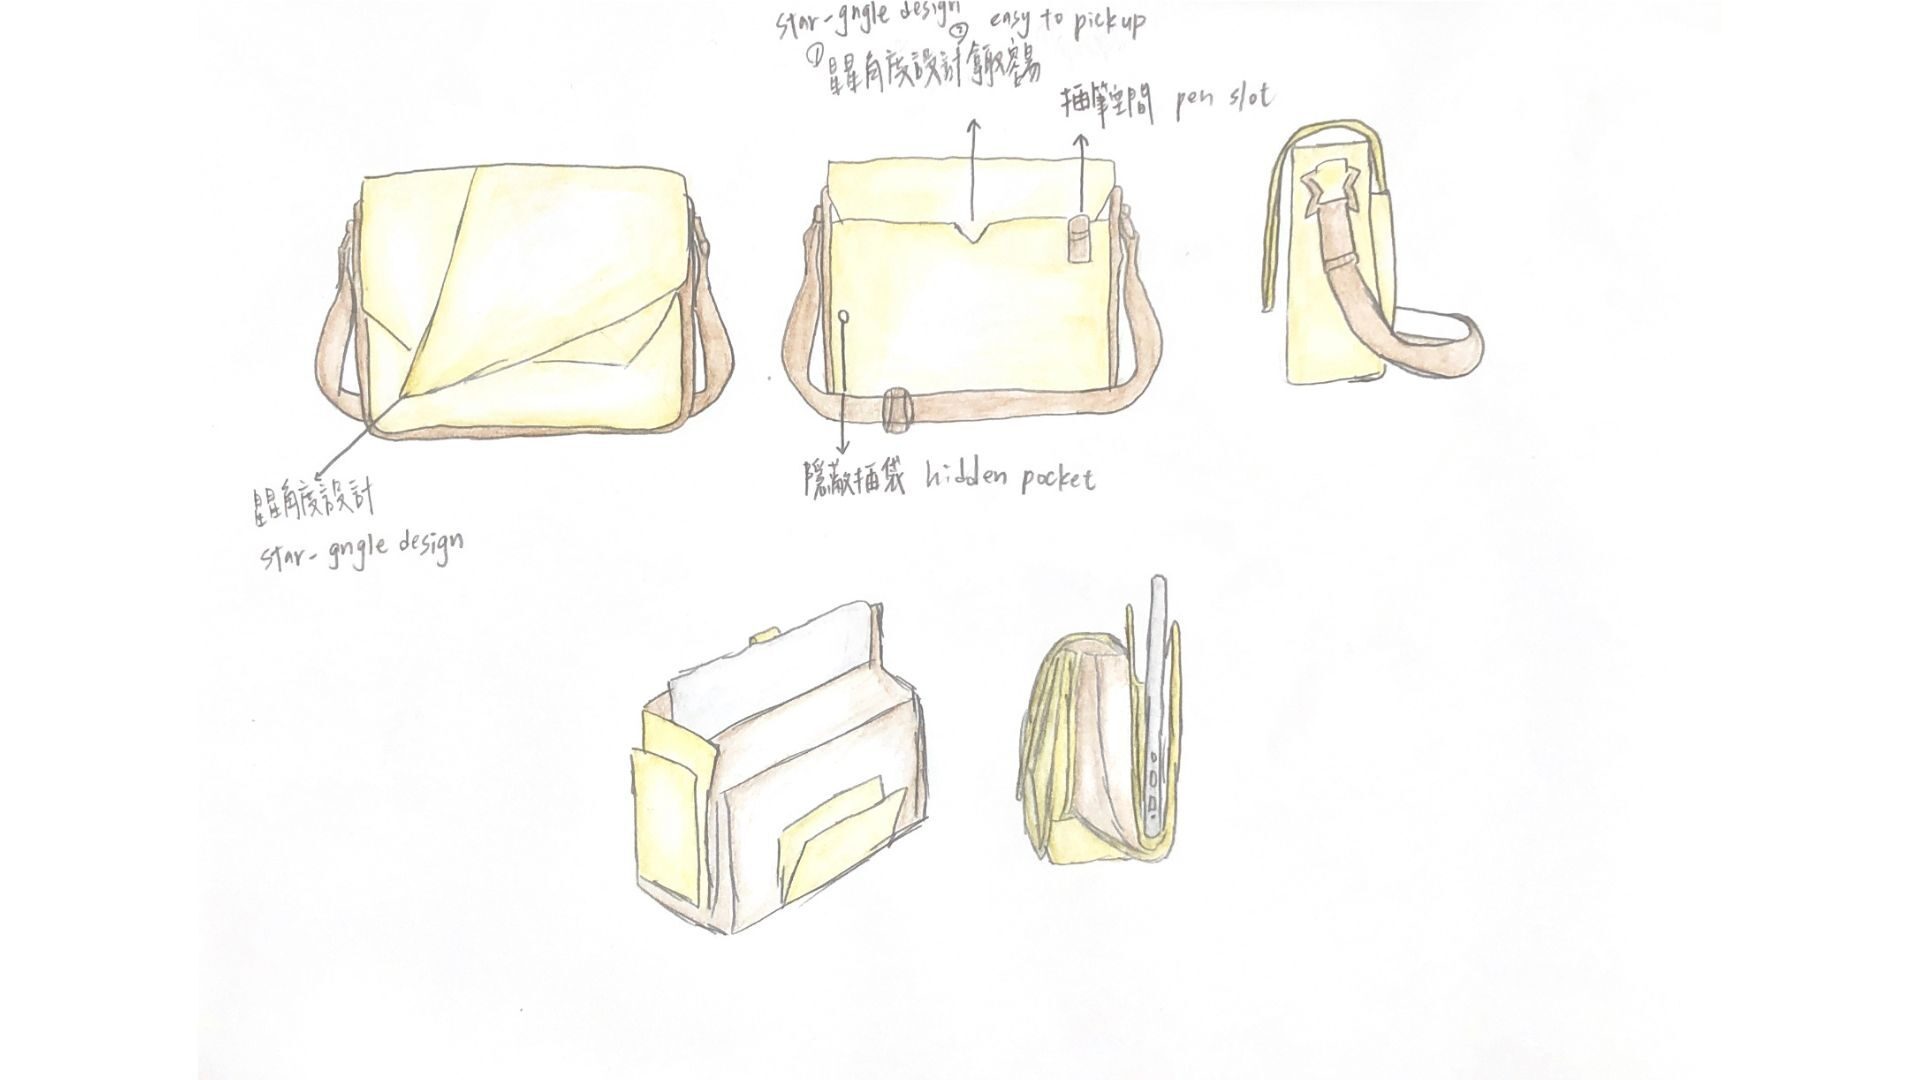 star-gngle design ② easy to pickup
① 星星角度設計 拿取容易
插筆空間 pen slot
隱蔽插袋 hidden pocket
星星角度設計
star-gngle design